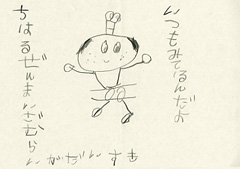 いつもみてるんだよ
ちはるぜんまいざむらい
がだいすき